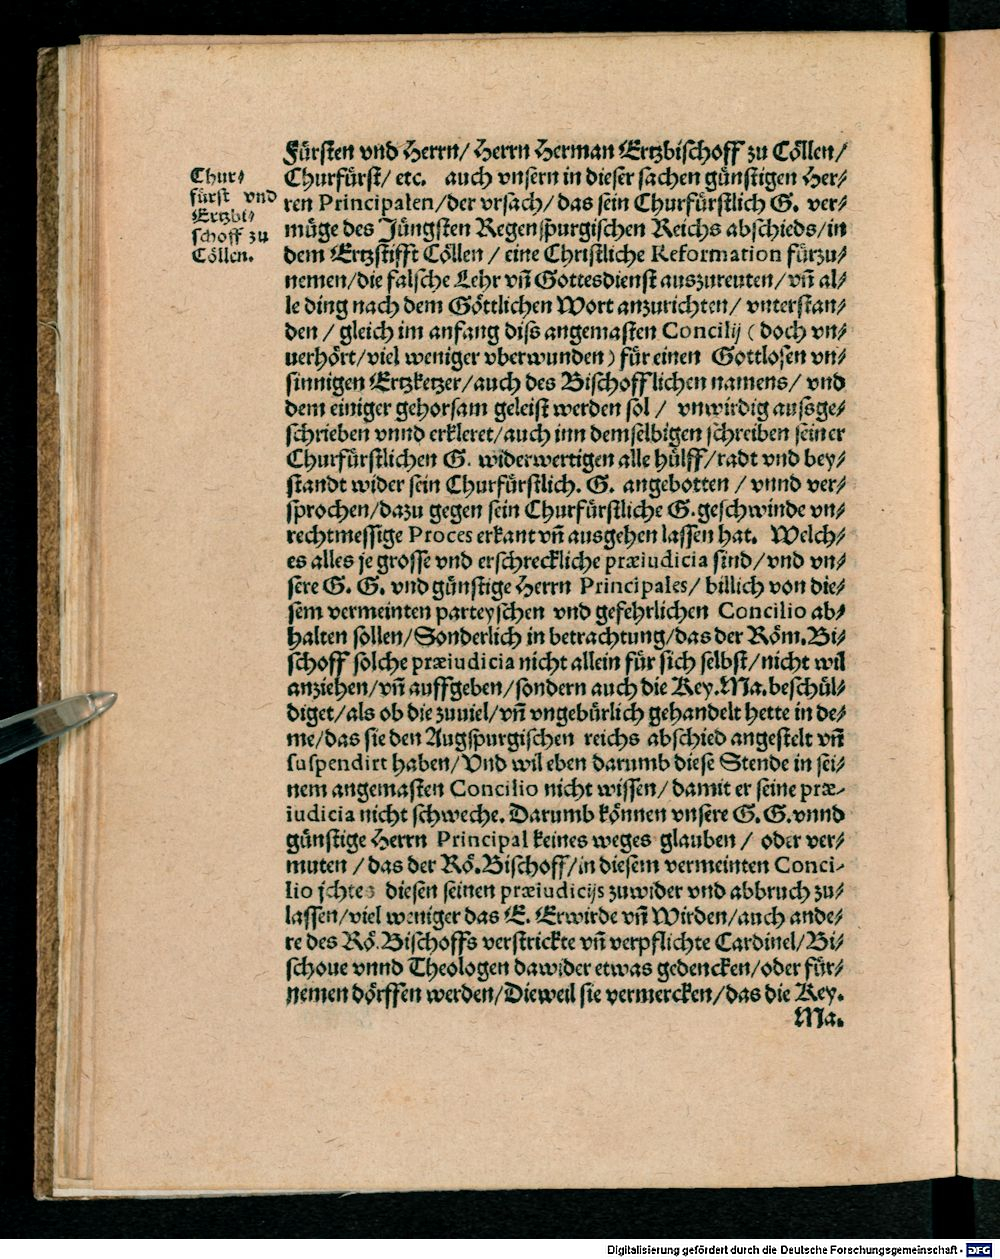 Fürsten vnd Herrn/ Herrn Herman Ertzbischoff zu Cöllen/
Churfürst/ etc. auch vnsern in dieser sachen günstigen Her/
ren Principalen/der vrsach/ das sein Churfürstlich G. ver/
müge des Jüngsten Regenspurgischen Reichs abschieds/in
dem Ertzstifft Cöllen / eine Christliche Reformation fürzu/
nemen/die falsche Lehr vñ Gottesdienst auszureuten/ vñ al/
le ding nach dem Göttlichen Wort anzurichten/ vnterstan/
den / gleich im anfang diß angemasten Concilij ( doch vn/
uerhört/viel weniger vberwunden ) für einen Gottlosen vn/
sinnigen Ertzketzer/auch des Bischofflichen namens/ vnd
dem einiger gehorsam geleist werden sol / vnwirdig aufsge/
schrieben vnnd erkleret/auch inn demselbigen schreiben seiner
Churfürstlichen G. widerwertigen alle hülff/radt vnd bey/
standt wider sein Churfürstlich. G. angebotten / vnnd ver/
sprochen/dazu gegen sein Churfürstliche G. geschwinde vn/
rechtmessige Proces erkant vñ ausgehen lassen hat. Welch/
es alles je grosse vnd erschreckliche præiudicia sind/vnd vn/
sere G. G. vnd günstige Herrn Principales/ billich von die/
sem vermeinten parteyschen vnd gefehrlichen Concilio ab/
halten sollen/Sonderlich in betrachtung/das der Röm. Bi/
schoff solche præiudicia nicht allein für sich selbst/nicht wil
anziehen/vñ auffgeben/sondern auch die Key. Ma. beschül/
diget/als ob die zuuiel/vñ vngebürlich gehandelt hette in de/
me/das sie den Augspurgischen reichs abschied angestelt vñ
suspendirt haben/Vnd wil eben darumb diese Stende in sei/
nem angemasten Concilio nicht wissen/ damit er seine præ-
iudicia nicht schweche. Darumb können vnsere G. G. vnnd
günstige Herrn Principal keines weges glauben / oder ver/
muten / das der Rö. Bischoff/in diesem vermeinten Conci-
lio jchtes diesen seinen præiudicijs zuwider vnd abbruch zu/
lassen/viel weniger das E. Erwirde vñ Wirden/auch ande/
re des Rö. Bischoffs verstrickte vñ verpflichte Cardinel/Bi/
schoue vnnd Theologen dawider etwas gedencken/oder für/
nemen dörffen werden/Dieweil sie vermercken/das die Key.
Ma.
Chur/
fürst vnd
Ertzbi/
schoff zu
Cöllen.
Digitalisierung gefördert durch die Deutsche Forschungsgemeinschaft - DFG